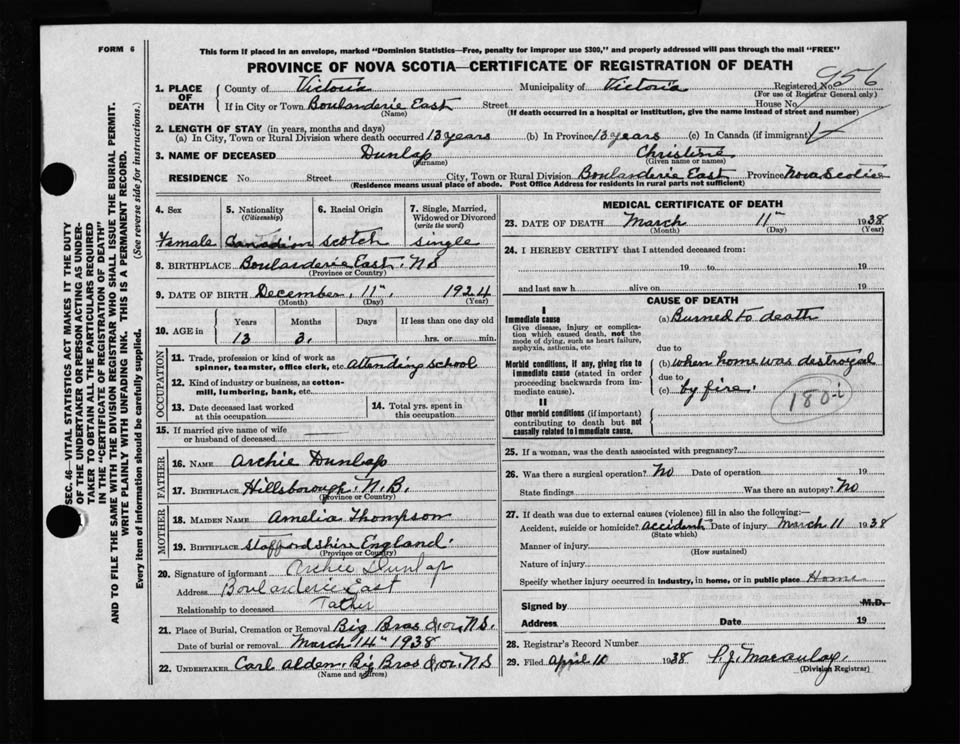 FORM 6
This form if placed in an envelope, marked "Dominion Statistics—Free, penalty for improper use $300," and properly addressed will pass through the mail "FREE"
PROVINCE OF NOVA SCOTIA—CERTIFICATE OF REGISTRATION OF DEATH
SEC. 46—VITAL STATISTICS ACT MAKES IT THE DUTY
OF THE UNDERTAKER OR PERSON ACTING AS UNDER-
TAKER TO OBTAIN ALL THE PARTICULARS REQUIRED
IN THE "CERTIFICATE OF REGISTRATION OF DEATH"
AND TO FILE THE SAME WITH THE DIVISION REGISTRAR WHO SHALL ISSUE THE BURIAL PERMIT.
WRITE PLAINLY WITH UNFADING INK. THIS IS A PERMANENT RECORD.
Every item of information should be carefully supplied. (See reverse side for instructions.)
1. PLACE OF DEATH
County of Victoria Municipality of Victoria Registered No. 956
(For use of Registrar General only)
If in City or Town Boulanderie East Street House No.
(Name) (If death occurred in a hospital or institution, give the name instead of street and number)
2. LENGTH OF STAY (in years, months and days)
(a) In City, Town or Rural Division where death occurred 13 years (b) In Province 13 years (c) In Canada (if immigrant)
3. NAME OF DECEASED Dunlap Christine
(Surname) (Given name or names)
RESIDENCE No. Street City, Town or Rural Division Boulanderie East Province Nova Scotia
(Residence means usual place of abode. Post Office Address for residents in rural parts not sufficient)
4. Sex 5. Nationality (Citizenship) 6. Racial Origin 7. Single, Married, Widowed or Divorced (write the word)
Famale Canadian Scotch Single
8. BIRTHPLACE Boulanderie East. N.S
(Province or Country)
9. DATE OF BIRTH December. 11th. 1924
(Month) (Day) (Year)
10. AGE in Years Months Days If less than one day old
13 3. hrs. or min.
OCCUPATION
11. Trade, profession or kind of work as spinner, teamster, office clerk, etc. Attending school
12. Kind of industry or business, as cotton-mill, lumbering, bank, etc.
13. Date deceased last worked at this occupation
14. Total yrs. spent in this occupation
15. If married give name of wife or husband of deceased
FATHER
16. NAME Archie Dunlap
17. BIRTHPLACE Hillsborough. N.B.
(Province or Country)
MOTHER
18. MAIDEN NAME Amelia Thompson
19. BIRTHPLACE Staffordshire England.
(Province or Country)
20. Signature of informant Archie Dunlap
Address Boulanderie East
Relationship to deceased Father
21. Place of Burial, Cremation or Removal Big Bras d'or, N.S.
Date of burial or removal March 14th 1938
22. UNDERTAKER Carl Alden. Big Bras d'or. N.S
(Name and address)
MEDICAL CERTIFICATE OF DEATH
23. DATE OF DEATH March 11th 1938
(Month) (Day) (Year)
24. I HEREBY CERTIFY that I attended deceased from:
19 to 19
and last saw h alive on 19
CAUSE OF DEATH
I
Immediate cause
Give disease, injury or complication which caused death, not the mode of dying, such as heart failure, asphyxia, asthenia, etc
(a) Burned to death
due to
Morbid conditions, if any, giving rise to immediate cause (stated in order proceeding backwards from immediate cause).
(b) when home was destroyed
due to
(c) by fire.
180-i
II
Other morbid conditions (if important) contributing to death but not causally related to immediate cause.
25. If a woman, was the death associated with pregnancy?
26. Was there a surgical operation? No Date of operation 19
State findings Was there an autopsy? No
27. If death was due to external causes (violence) fill in also the following:—
Accident, suicide or homicide? accident Date of injury March 11 1938
(State which)
Manner of injury
(How sustained)
Nature of injury
Specify whether injury occurred in industry, in home, or in public place Home
Signed by M.D.
Address Date 19
28. Registrar's Record Number
29. Filed April 10 1938 P.J. Macaulay.
(Division Registrar)